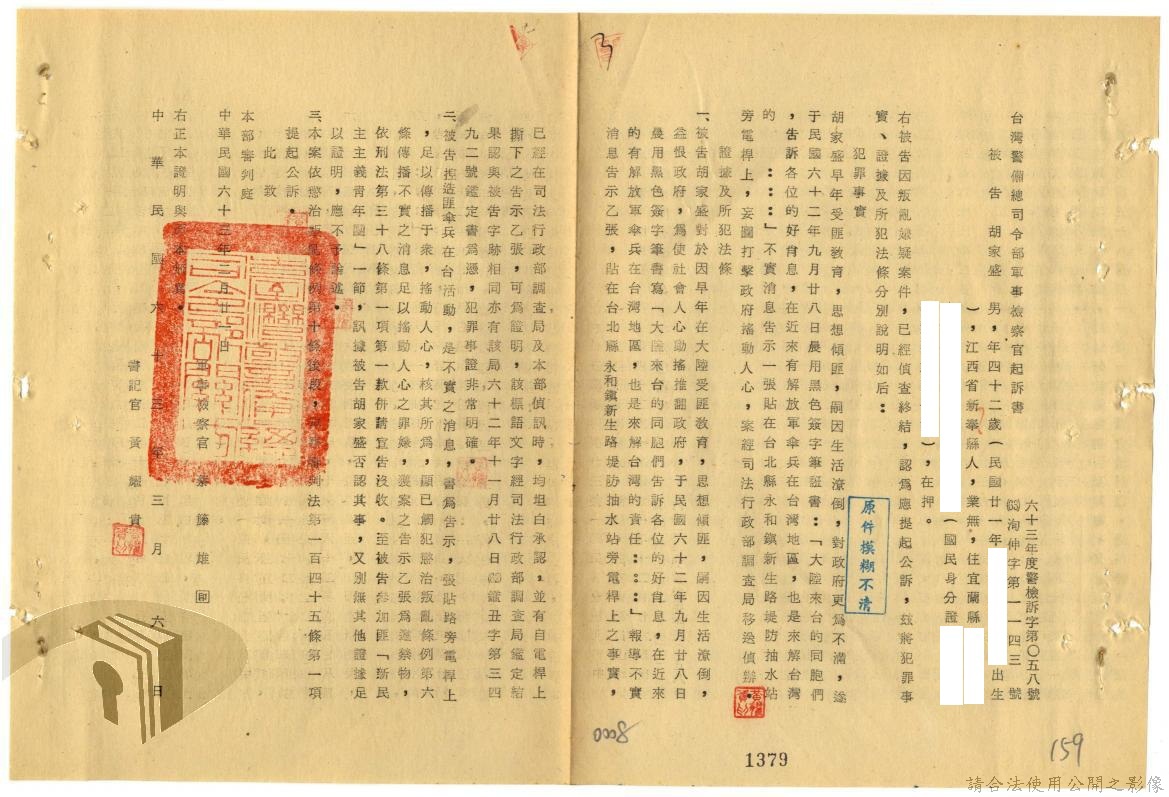 台灣警備總司令部軍事檢察官起訴書
六十三年度警檢訴字第〇五八號
(63)洵伸字第一一四三號
被告胡家盛 男,年四十二歲(民國廿一年
出生
),江西省新奉縣人,業無,住宜蘭縣
(國民身分證
),在押。
右被告因叛亂嫌疑案件,已經偵查終結,認為應提起公訴,玆將犯罪事
實、證據及所犯法條分別說明如后:
犯罪事實
胡家盛早年受匪教育,思想傾匪,嗣因生活潦倒,對政府更為不滿,遂
于民國六十二年九月廿八日晨用黑色簽字筆書:「大陸來台的同胞們
,告訴各位的好肖息,在近來有解放軍傘兵在台灣地區,也是來解台灣
的::::」不實消息告示一張貼在台北縣永和鎮新生路堤防抽水站
旁電桿上,妄圖打擊政府搖動人心,案經司法行政部調查局移送偵辦。
證據及所犯法條
一、被告胡家盛對於因早年在大陸受匪教育,思想傾匪,嗣因生活潦倒,
益恨政府,為使社會人心動搖推翻政府,于民國六十二年九月廿八日
晨用黑色簽字筆書寫「大陸來台的同胞們告訴各位的好肖息,在近來
的有解放軍傘兵在台灣地區,也是來解台灣的責任:::」報導不實
消息告示乙張,貼在台北縣永和鎮新生路堤防抽水站旁電桿上之事實,
已經在司法行政部調查局及本部偵訊時,均坦白承認,並有自電桿上
撕下之告示乙張,可為證明,該標語文字經司法行政部調查局鑑定結
果認與被告字跡相同亦有該局六十二年十一月廿八日(62)鑑丑字第三四
九二號鑑定書為憑,犯罪事證非常明確。
二、被告捏造匪傘兵在台活動,是不實之消息,書為告示,張貼路旁電桿上
,足以傳播于衆,搖動人心,核其所為,顯已觸犯懲治叛亂條例第六
條傳播不實之消息足以搖動人心之罪嫌,獲案之告示乙張為違禁物,
依刑法第三十八條第一項第一款併請宣告沒收。至被告參加匪「新民
主主義青年團」一節,訊據被告胡家盛否認其事,又別無其他證據足
以證明,應不予論述。
三、本案依懲治叛亂條例第十條後段,刑法第一百四十五條第一項
提起公訴。
此致
本部審判庭
中華民國六十三年二月廿一日
軍事檢察官 藤雄 印
右正本證明與原本無異。
書記官 黃耀貴
中華民國六十三年三月六日
原件模糊不清
1379
159
8000
請合法使用公開之影像